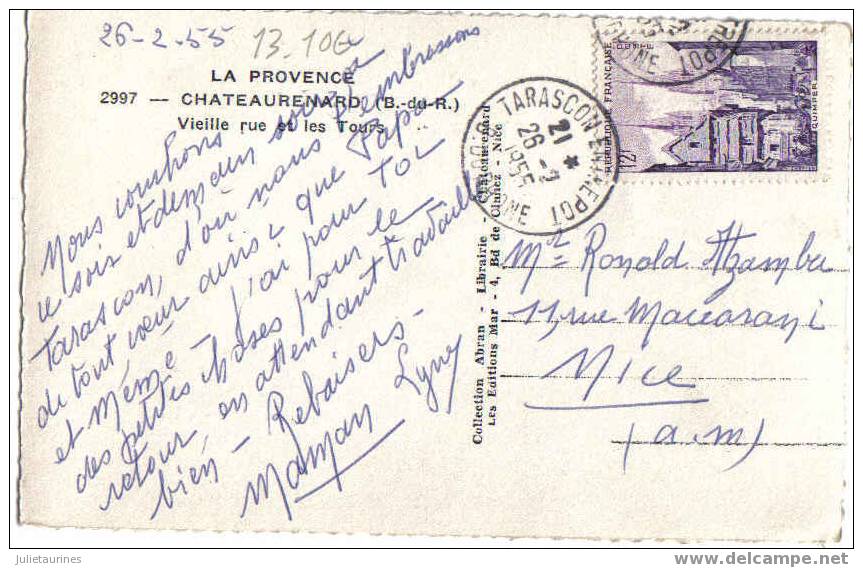 26-2-55
13.10
LA PROVENCE
2997 — CHATEAURENARD (B.-du-R.)
Vieille rue et les Tours
Nous couchons
ce soir et demain soir
Tarascon, d'où nous t'embrassons
de tout cœur ainsi que Papa
et Mémé - J'ai pour toi
des petites choses pour le
retour, en attendant travaille
bien - Rebaisers -
Maman Lyne
Collection Abran - Librairie - Châteaurenard
Les Editions Mar - 4, Bd de Cimiez - Nice
TARASCON ENTREPOT
21 *
26 -2
1955
B. DU RHONE
REPUBLIQUE FRANÇAISE
POSTES
12F
QUIMPER
Mr Ronald
11, rue Maccarani
Nice
(a.m)
julietaurines
www.delcampe.net